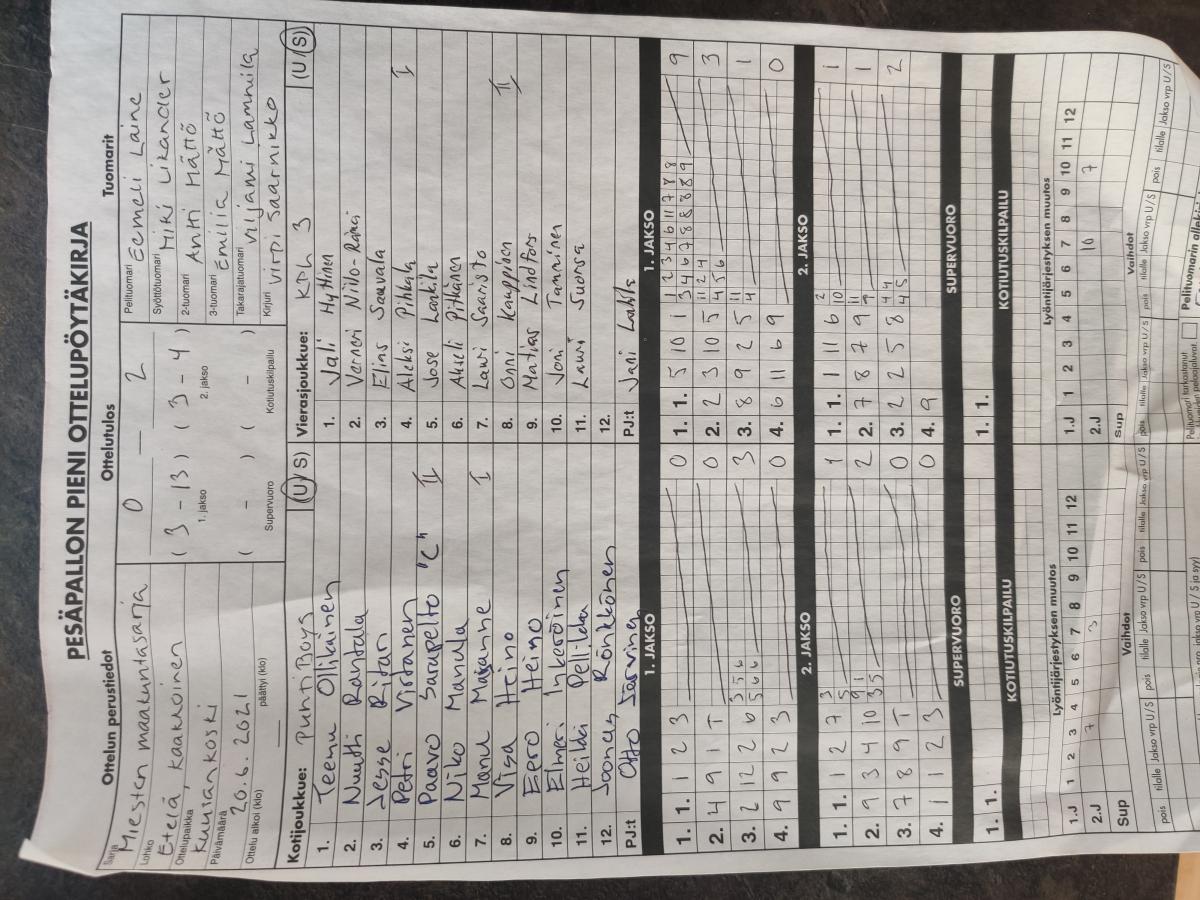 PESÄPALLON PIENI OTTELUPÖYTÄKIRJA
Ottelun perustiedot
Sarja
Miesten maakuntasarja
Lohko
Etelä, kaakkoinen
Ottelupaikka
Kuniankoski
Päivämäärä
20.6.2021
Ottelu alkoi (klo) päättyi (klo)
Ottelutulos
0 — 2
( 3 - 13 ) ( 3 - 4 )
1. jakso 2. jakso
( - ) ( - )
Supervuoro Kotiutuskilpailu
Tuomarit
Pelituomari Eemeli Laine
Syöttötuomari Miki Likander
2-tuomari Antti Mättö
3-tuomari Emilia Mättö
Takarajatuomari Viljami Lammila
Kirjuri Virpi Saarnikko
Kotijoukkue: PuntiBoys (U/S)
1. Teemu Ollikainen
2. Nuutti Rantala
3. Jesse Ristari
4. Petri Virtanen
5. Paavo Sarapelto "C" II
6. Niko Mannila
7. Manu I
8. Visa Heino
9. Eero Heino
10. Elmeri Inkeroinen
11. Heikki Pelli
12. Joonas Rönkkönen
PJ:t Otto Järvinen
Vierasjoukkue: KPL 3 (U/S)
1. Jali Hyttinen
2. Verneri Niilo-Rämä
3. Elias Sauvala
4. Aleksi Pihkala I
5. Jose Laakila
6. Akseli Pitkänen
7. Lauri Saaristo
8. Onni Kauppinen II
9. Matias Lindfors
10. Joni Tamminen
11. Lauri Suonsa
12.
PJ:t Jani Lahti
1. JAKSO
1. 1. 1 2 3 0
2. 4 9 1 T 0
3. 2 12 2 6 3 5 6 3
5 6 6
4. 9 9 2 3 0
2. JAKSO
1. 1. 1 2 7 3 1
5
2. 9 3 4 10 9 1 2
3 5
3. 7 8 9 T 0
4. 1 1 2 3 0
SUPERVUORO
1. 1.
KOTIUTUSKILPAILU
1. JAKSO
1. 1. 5 10 1 1 2 3 4 6 11 7 8 8 9
3 4 6 7 8 8 8 8 9
2. 2 3 10 5 11 2 4 3
4 5 6
3. 8 9 2 5 11 1
4
4. 6 11 6 9 0
2. JAKSO
1. 1. 1 11 6 2 1
10
2. 7 8 7 9 11 1
9
3. 2 2 5 8 4 4 2
4 5
4. 9
SUPERVUORO
1. 1.
KOTIUTUSKILPAILU
Lyöntijärjestyksen muutos
1.J 1 2 3 4 5 6 7 8 9 10 11 12
2.J 7 3
Sup
Vaihdot
pois tilalle Jakso vrp U/S pois tilalle Jakso vrp U/S
Lyöntijärjestyksen muutos
1.J 1 2 3 4 5 6 7 8 9 10 11 12
2.J 10 7
Sup
Vaihdot
pois tilalle Jakso vrp U/S pois tilalle Jakso vrp U/S
pois tilalle Jakso vrp U/S
vrp U/S ja syy)
Pelituomari tarkastanut
Pelituomarin